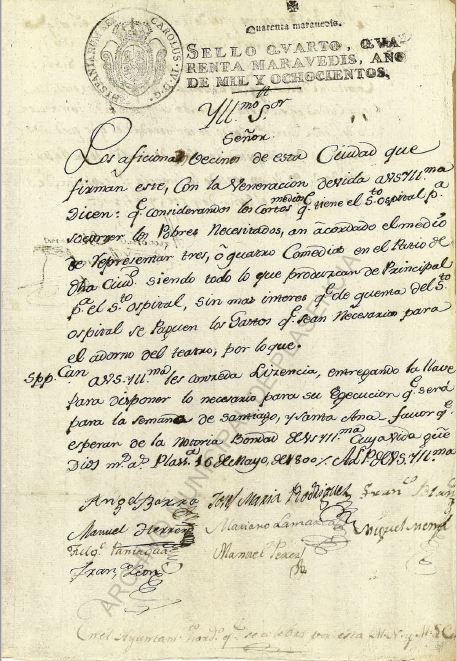 Quarenta maravedis.
SELLO QVARTO, QVA-
RENTA MARAVEDIS, AÑO
DE MIL Y OCHOCIENTOS.
HISPANIARUM REX CAROLUS IV D G
Yll.mo S.or
Señor
Los aficionad Vecinos de esta Ciudad que
firman este, Con la Veneracion devida a VS Yllma
Dicen: q.e considerando los Cortos medios q.e tiene el S.to ospital p.a
socorrer los Pobres Necesitados, an acordado el medio
de representar tres, ó quatro Comedias en el Patio de
dha Ciud. siendo todo lo que produzcan de Principal
p.a el S.to ospital, sin mas interes q.e de quenta del S.to
ospital se Paguen los Gastos q.e sean Necesarios para
el adorno del teatro; por lo que.
Supp.can A VS. Yll.ma les conzeda Lizencia, entregando la llave
para disponer lo necesario para su Egecucion q.e será
para la semana de Santiago, y Santa Ana favor q.e
esperan de la Notoria Bondad de VS Yll.ma Cuya Vida gũe
Dios m.s a.s Plas.a 16 de Mayo, de 1800
Angel Barra Josef Maria Rodriguez Fran.co
Manuel Herrero Mariano Lamarca Miguel
Paniagua Manuel Perez
Fran.co Leon
En el Ayuntam.to hord.o q.e se celebro por esta M. N. y M. L. C.
ARCHIVO MUNICIPAL DE PLASENCIA